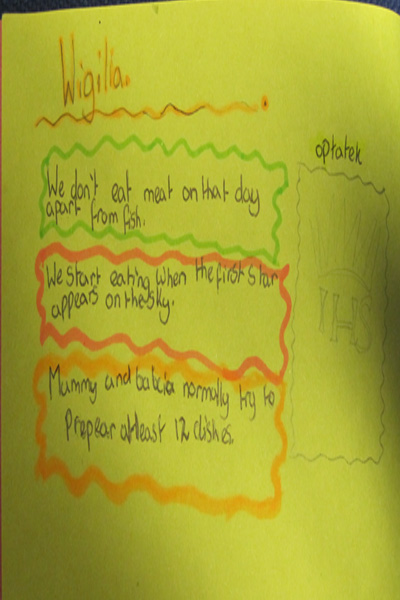 Wigilia.
We don't eat meat on that day
apart from fish.
We start eating when the first star
appears on the sky.
Mammy and babcia normally try to
Prepear atleast 12 dishes.
opłatek
IHS